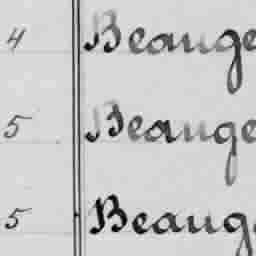 4 Beauge
5 Beauge
5 Beauge